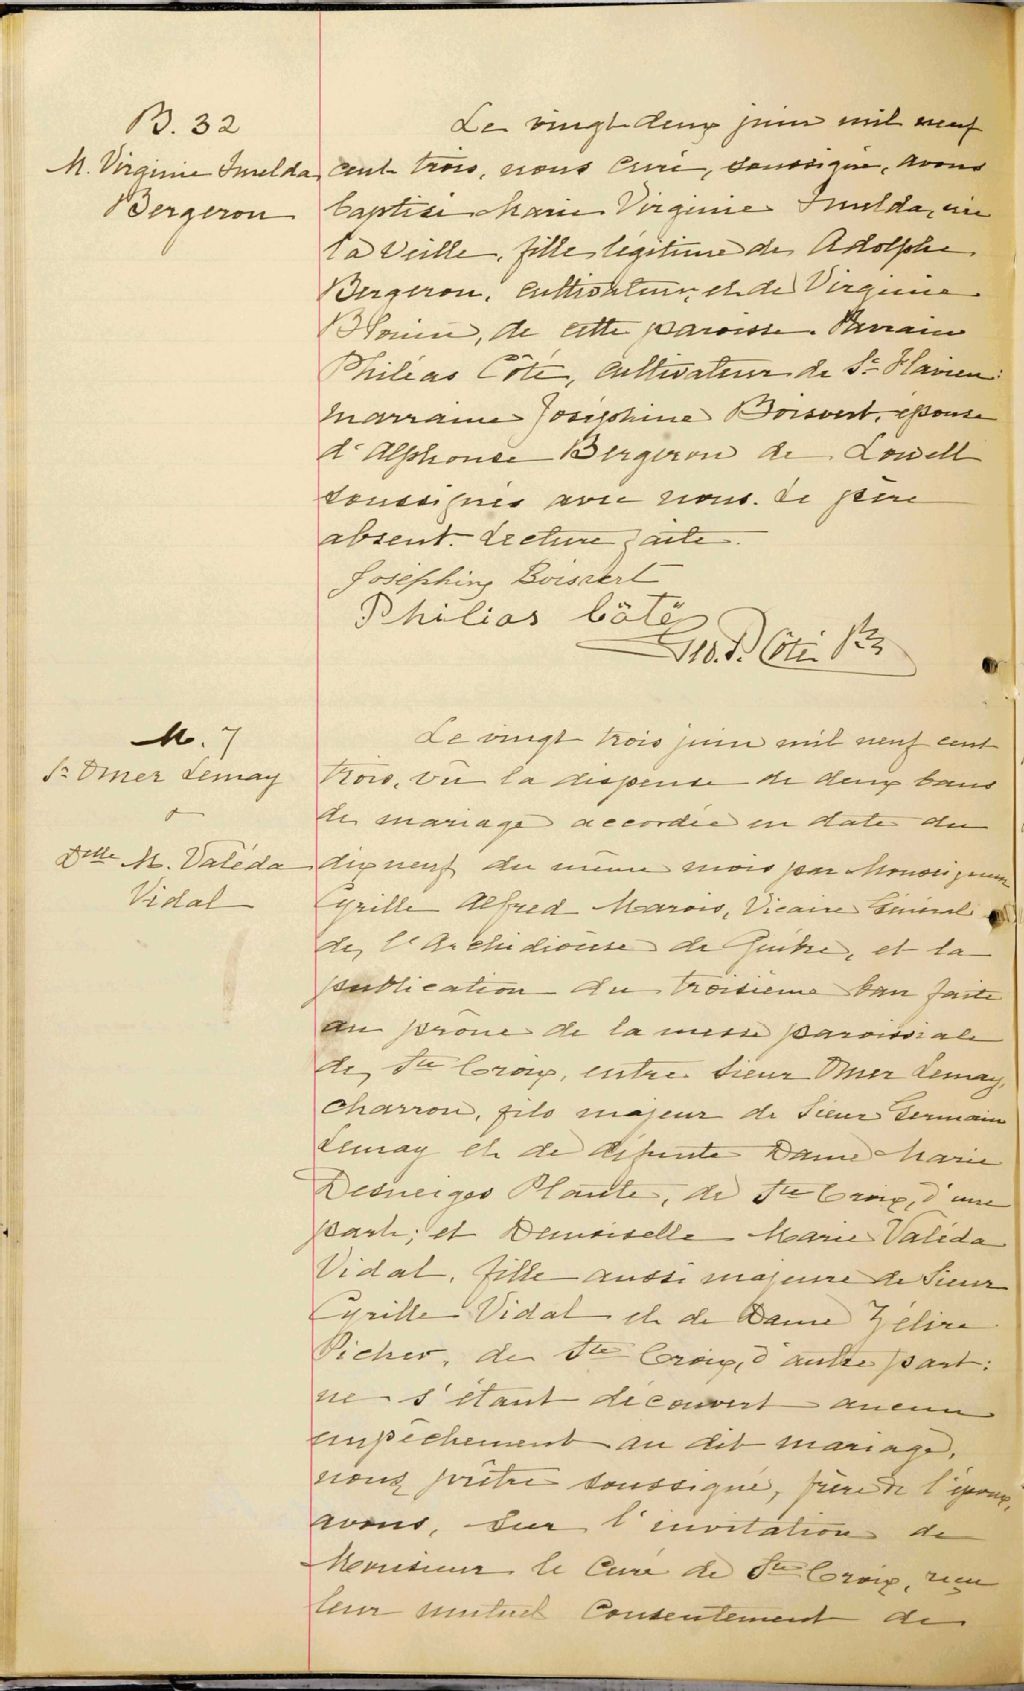 B. 32
M. Virginie Imelda
Bergeron
Le vingt deux juin mil neuf
cent trois, nous curé, soussigné, avons
baptisé Marie Virginie Imelda, née
la veille, fille légitime de Adolphe
Bergeron, cultivateur, et de Virginie
Blouin, de cette paroisse. Parrain
Philéas Côté, cultivateur de St Flavien:
marraine Joséphine Boisvert, épouse
d'Alphonse Bergeron de Lowell
soussignés avec nous. Le père
absent. Lecture faite.
Joséphine Boisvert
Philias Côté
Geo. P. Côté Ptre
M. 7
Sr Omer Lemay
&
Delle M. Valéda
Vidal
Le vingt trois juin mil neuf cent
trois, vû la dispense de deux bans
de mariage accordée en date du
dix neuf du même mois par Monseigneur
Cyrille Alfred Marois, Vicaire Général
de l'Archidiocèse de Québec, et la
publication du troisième ban faite
au prône de la messe paroissiale
de Ste Croix, entre Sieur Omer Lemay,
charron, fils majeur de Sieur Germain
Lemay et de défunte Dame Marie
Desneiges Plante, de Ste Croix, d'une
part; et Demoiselle Marie Valéda
Vidal, fille aussi majeure de Sieur
Cyrille Vidal et de Dame Zélire
Picher, de Ste Croix, d'autre part:
ne s'étant découvert aucun
empêchement au dit mariage,
nous, prêtre soussigné, frère de l'époux,
avons, sur l'invitation de
Monsieur le Curé de Ste Croix, reçu
leur mutuel consentement de